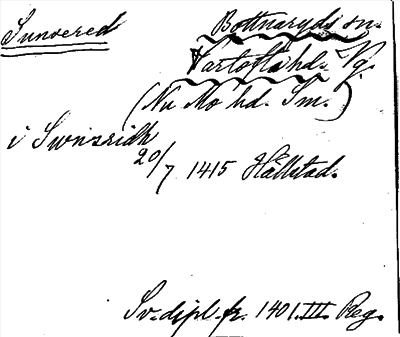 Sunvered
Bottnaryds sn.
Vartofta hd. Vg.
(Nu Mo hd. Sm.)
i Swnsridh
20/7 1415 Hällstad.
Sv. dipl. fr. 1401. III. Reg.